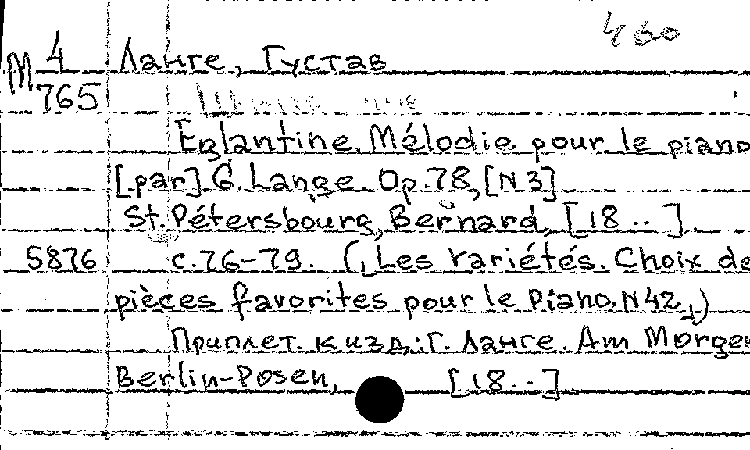 460
М 4 Ланге, Густав
765
Eglantine. Mélodie pour le piano
[par] G. Lange. Op. 78, [N 3]
St. Pétersbourg, Bernard, [18..].
5876 с. 76-79. (Les variétés. Choix de
pièces favorites pour le piano. N 42)
Приплет. к изд.: Г. Ланге. Am Morgen
Berlin-Posen, [18..]